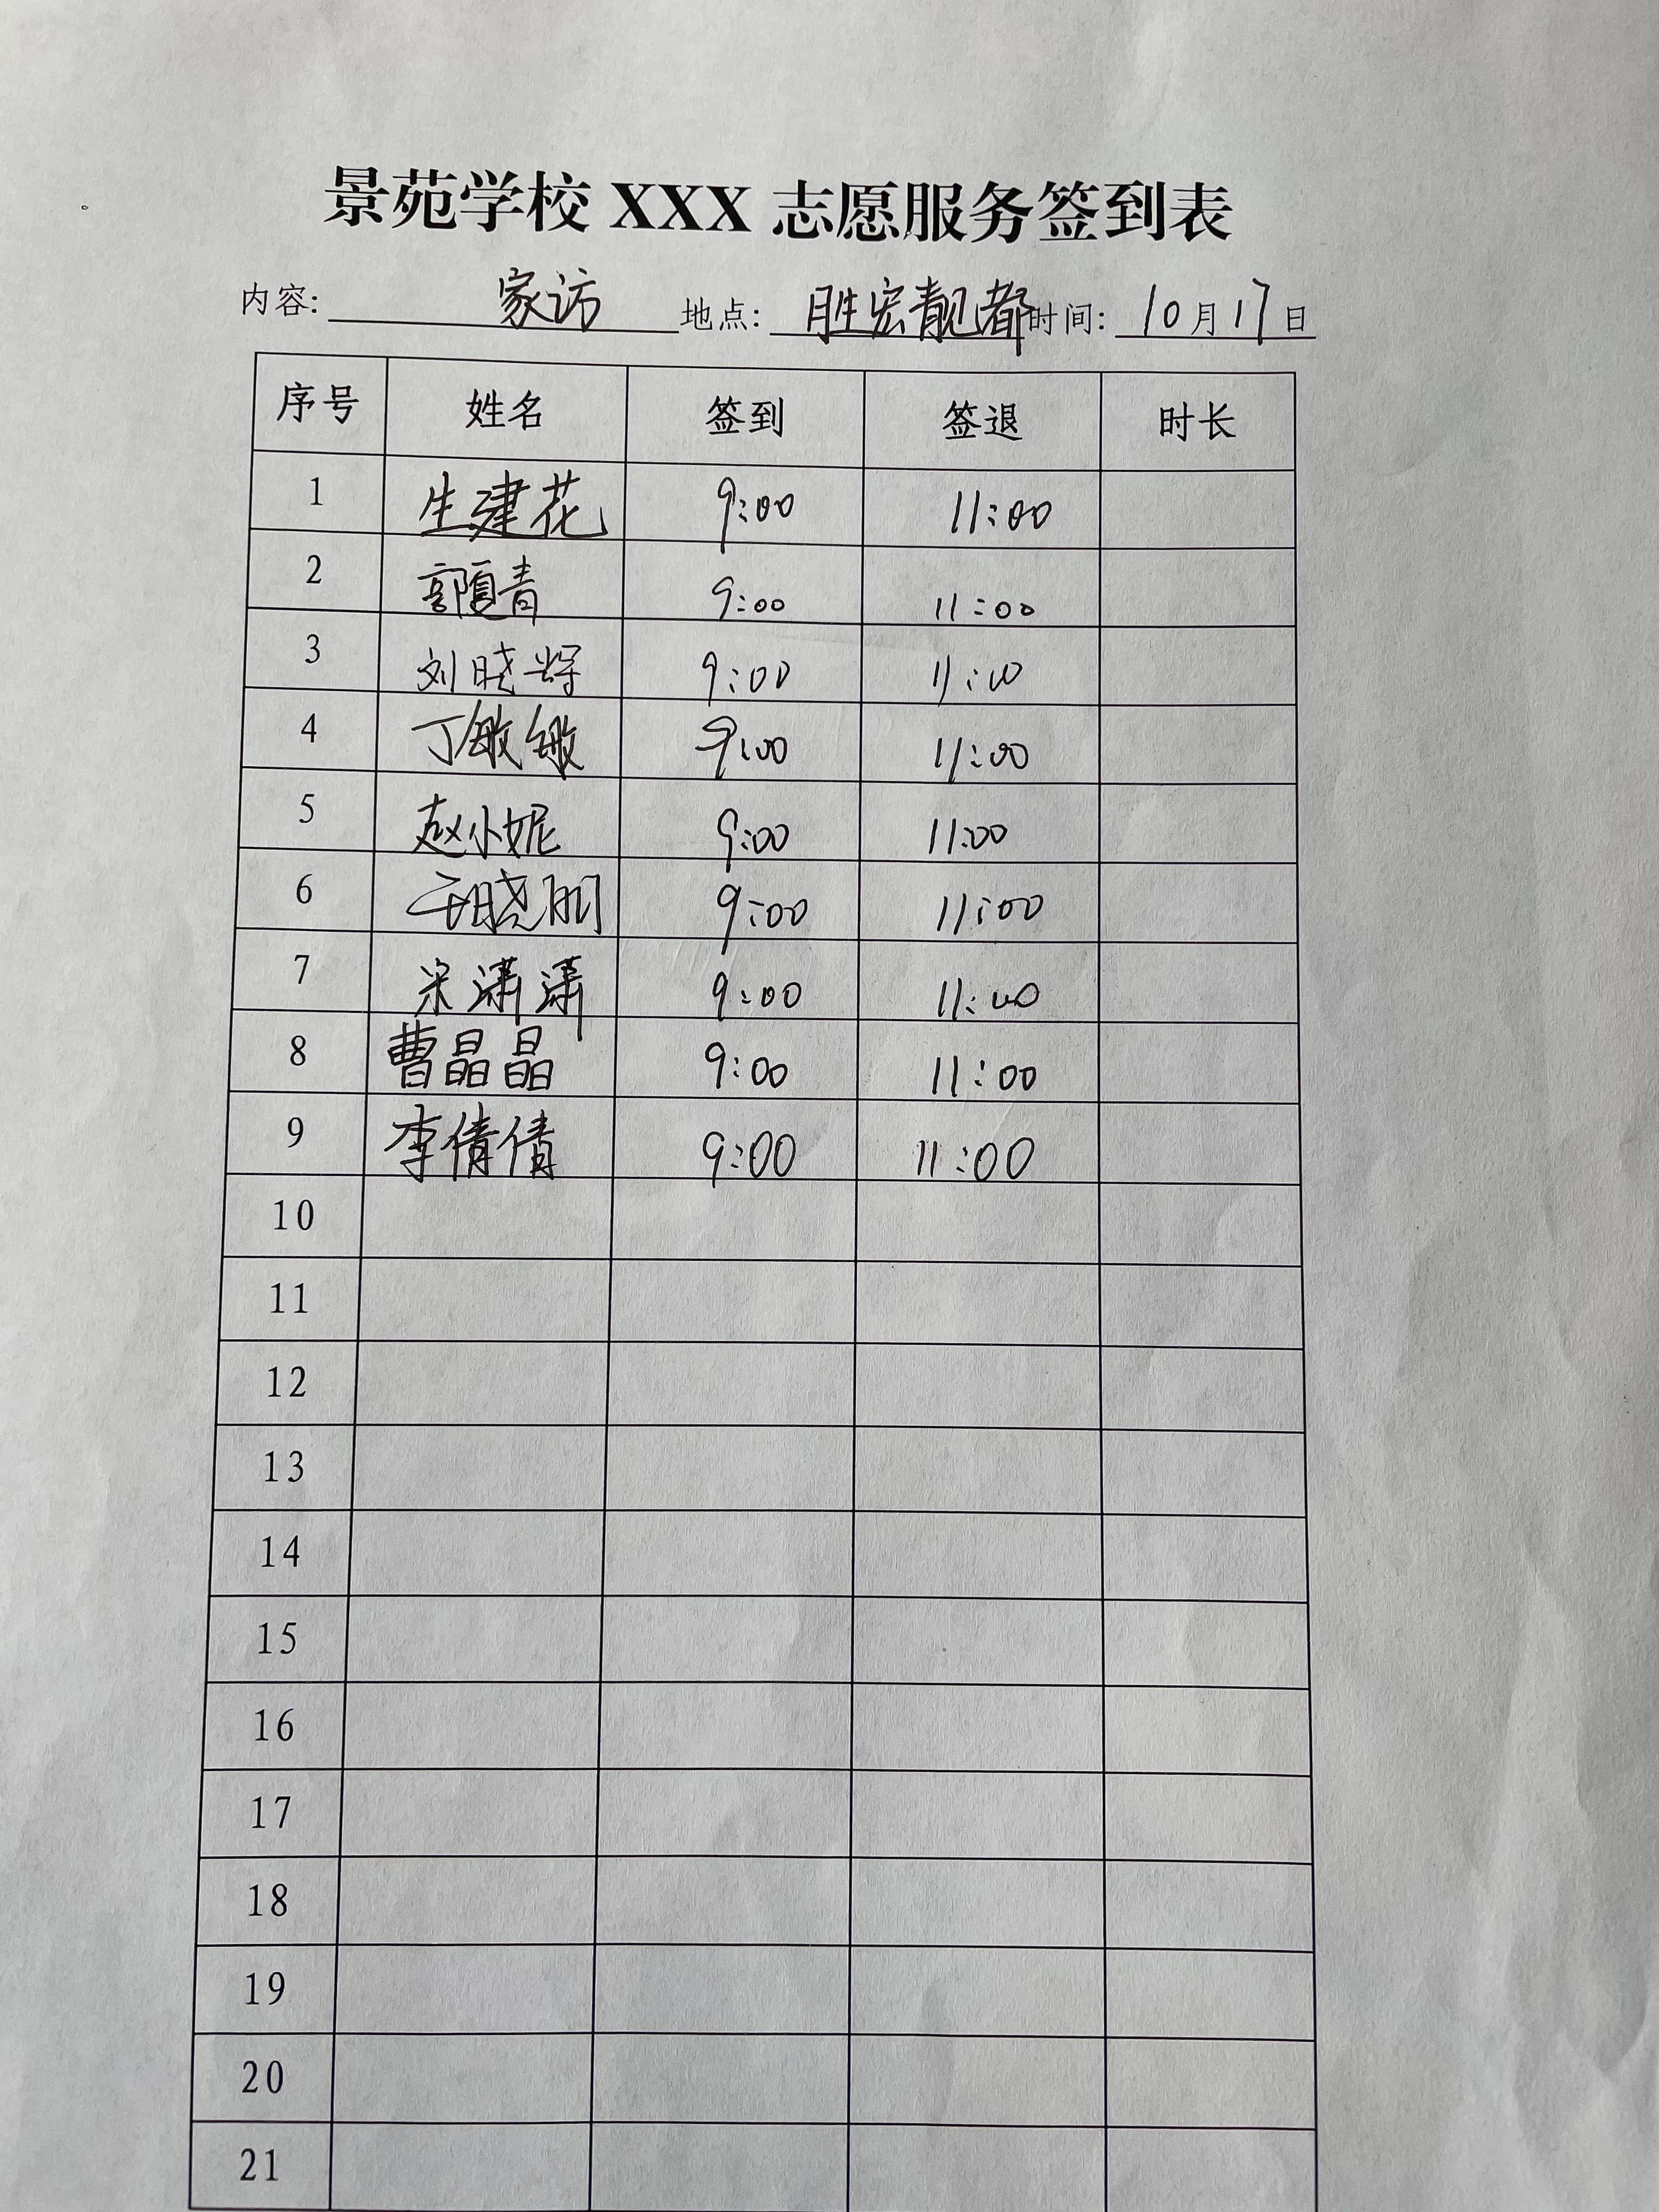 景苑学校 XXX 志愿服务签到表
内容: 家访 地点: 胜宏靓都 时间: 10月17日
序号 姓名 签到 签退 时长
1 生建花 9:00 11:00
2 郭夏青 9:00 11:00
3 刘晓辉 9:00 11:00
4 丁敏敏 9:00 11:00
5 赵小妮 9:00 11:00
6 晓丽 9:00 11:00
7 宋潇潇 9:00 11:00
8 曹晶晶 9:00 11:00
9 李倩倩 9:00 11:00
10
11
12
13
14
15
16
17
18
19
20
21